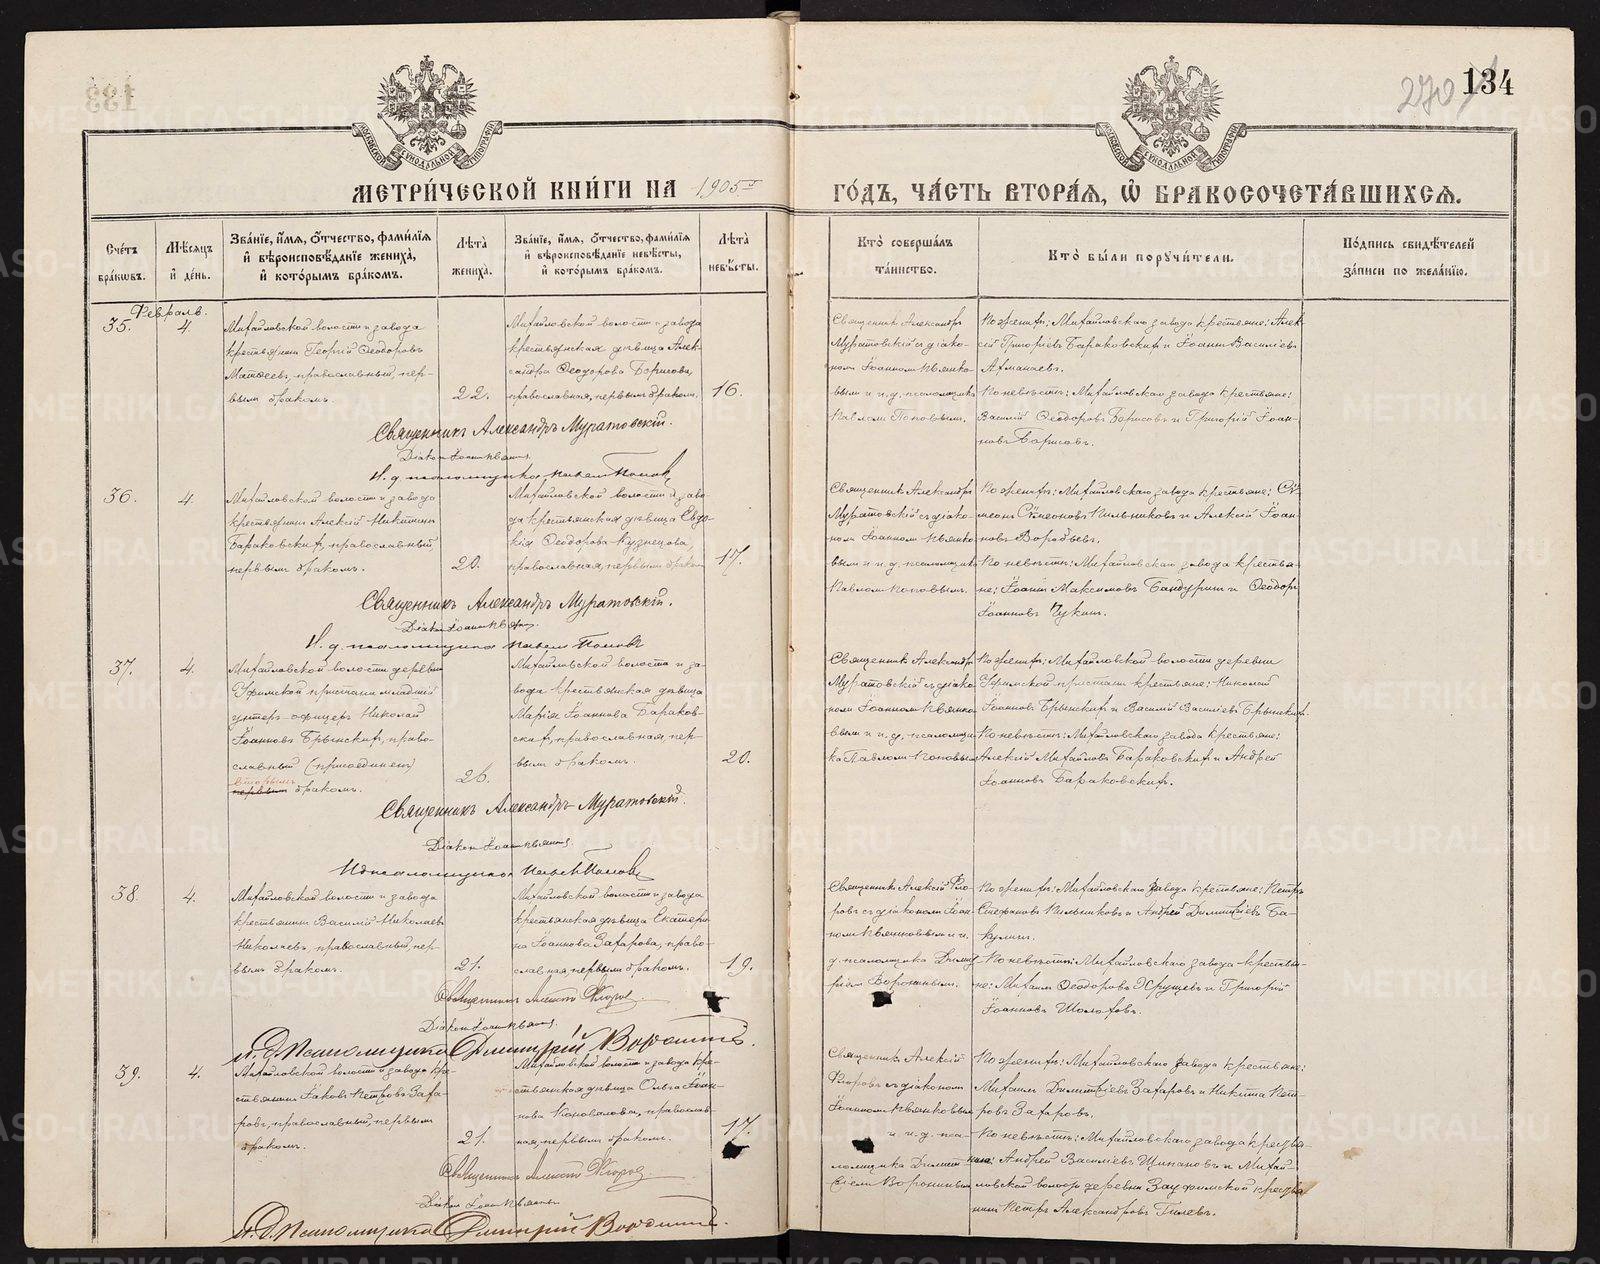 134
270
МЕТРИ́ЧЕСКОЙ КНИ́ГИ НА 1905 г
ГО́ДЪ, ЧА́СТЬ ВТОРА́Я, Ѡ БРАКОСОЧЕТА́ВШИХСЯ.
Счётъ бра́ковъ.
Мѣ́сяцъ и҆ де́нь.
Зва́нїе, и҆́мя, ѻ҆́тчество, фами́лїя
и҆ вѣроисповѣ́данїе жениха̀,
и҆ кото́рымъ бра́комъ.
Лѣта̀ жениха̀.
Зва́нїе, и҆́мя, ѻ҆́тчество, фами́лїя
и҆ вѣроисповѣ́данїе невѣ́сты,
и҆ кото́рымъ бра́комъ.
Лѣта̀ невѣ́сты.
Кто̀ соверша́лъ та́инство.
Кто̀ бы́ли поручи́тели.
По́дпись свидѣ́телей за́писи по жела́нїю.
Февраль.
35.
4.
Михайловской волости и завода
крестьянинъ Георгій Ѳеодоровъ
Матвеевъ, православный, пер-
вымъ бракомъ.
22.
Михайловской волости и завода
крестьянская дѣвица Алек-
сандра Ѳеодорова Борисова,
православная, первымъ бракомъ.
16.
Священникъ Александръ
Муратовскій съ діако-
номъ Іоанномъ Пьянко-
вымъ и и. д. псаломщика
Павломъ Поповымъ.
По женихѣ: Михайловскаго завода крестьяне: Алек-
сій Григоріевъ Бараковскихъ и Іоаннъ Василіевъ
Атманаевъ.
По невѣстѣ: Михайловскаго завода крестьяне:
Василій Ѳеодоровъ Борисовъ и Григорій Іоан-
новъ Борисовъ.
Священникъ Александръ Муратовскій.
Діаконъ Іоаннъ Пьянковъ
И. д. псаломщика Павелъ Поповъ
36.
4.
Михайловской волости и завода
крестьянинъ Алексій Никитинъ
Бараковскихъ, православный,
первымъ бракомъ.
20.
Михайловской волости и заво-
да крестьянская дѣвица Евдо-
кія Ѳеодорова Кузнецова,
православная, первымъ бракомъ
17.
Священникъ Александръ
Муратовскій съ діако-
номъ Іоанномъ Пьянко-
вымъ и и. д. псаломщика
Павломъ Поповымъ.
По женихѣ: Михайловскаго завода крестьяне: Сѵ-
меонъ Сѵмеоновъ Пильниковъ и Алексій Іоан-
новъ Воробьевъ.
По невѣстѣ: Михайловскаго завода крестья-
не: Іоаннъ Максимовъ Бандуринъ и Ѳеодоръ
Іоанновъ Чукинъ.
Священникъ Александръ Муратовскій.
Діаконъ Іоаннъ Пьянковъ
И. д. псаломщика Павелъ Поповъ
37.
4.
Михайловской волости деревни
Уфимской пристани младшій
унтеръ-офицеръ Николай
Іоанновъ Брынскихъ, право-
славный (присоединен)
вторымъ
первымъ бракомъ.
26.
Михайловской волости и за-
вода крестьянская дѣвица
Марія Іоаннова Бараков-
скихъ, православная, пер-
вымъ бракомъ.
20.
Священникъ Александръ
Муратовскій съ діако-
номъ Іоанномъ Пьянко-
вымъ и и. д. псаломщи-
ка Павломъ Поповымъ
По женихѣ: Михайловской волости деревни
Уфимской пристани крестьяне: Николай
Іоанновъ Брынскихъ и Василій Василіевъ Брынскихъ.
По невѣстѣ: Михайловскаго завода крестьяне:
Алексій Михайловъ Бараковскихъ и Андрей
Іоанновъ Бараковскихъ.
Священникъ Александръ Муратовскій.
Діаконъ Іоаннъ Пьянковъ
И д псаломщика Павелъ Поповъ
38.
4.
Михайловской волости и завода
крестьянинъ Василій Николаевъ
Николаевъ, православный, пер-
вымъ бракомъ.
21.
Михайловской волости и завода
крестьянская дѣвица Екатери-
на Іоаннова Захарова, право-
славная, первымъ бракомъ.
19.
Священникъ Алексій Фло-
ровъ съ діакономъ Іоан-
номъ Пьянковымъ и и.
д. псаломщика Димит-
ріемъ Воронинымъ.
По женихѣ: Михайловскаго завода крестьяне: Петръ
Стефановъ Пильниковъ и Андрей Димитріевъ Ба-
кулинъ.
По невѣстѣ: Михайловскаго завода крестья-
не: Михаилъ Ѳеодоровъ Хрущевъ и Григорій
Іоанновъ Шолоховъ.
Священникъ Алексій Флоровъ
Діаконъ Іоаннъ Пьянковъ
И. д. Псаломщика Димитрій Воронинъ.
39.
4.
Михайловской волости и завода кре-
стьянинъ Іаковъ Петровъ Заха-
ровъ, православный, первымъ
бракомъ.
21.
Михайловской волости и завода кре-
стьянская дѣвица Ольга Іоан-
нова Коновалова, православ-
ная, первымъ бракомъ.
17.
Священникъ Алексій
Флоровъ съ діакономъ
Іоанномъ Пьянковымъ
и и. д. пса-
ломщика Димит-
ріемъ Воронинымъ
По женихѣ: Михайловскаго завода крестьяне:
Михаилъ Димитріевъ Захаровъ и Никита Пет-
ровъ Захаровъ.
По невѣстѣ: Михайловскаго завода крестья-
нинъ Андрей Василіевъ Щипановъ и Михай-
ловской волости деревни Зауфимской крестья-
нинъ Петръ Александровъ Гилевъ.
Священникъ Алексій Флоровъ
Діаконъ Іоаннъ Пьянковъ
И. д. Псаломщика Димитрій Воронинъ.
METRIKI.GASO-URAL.RU